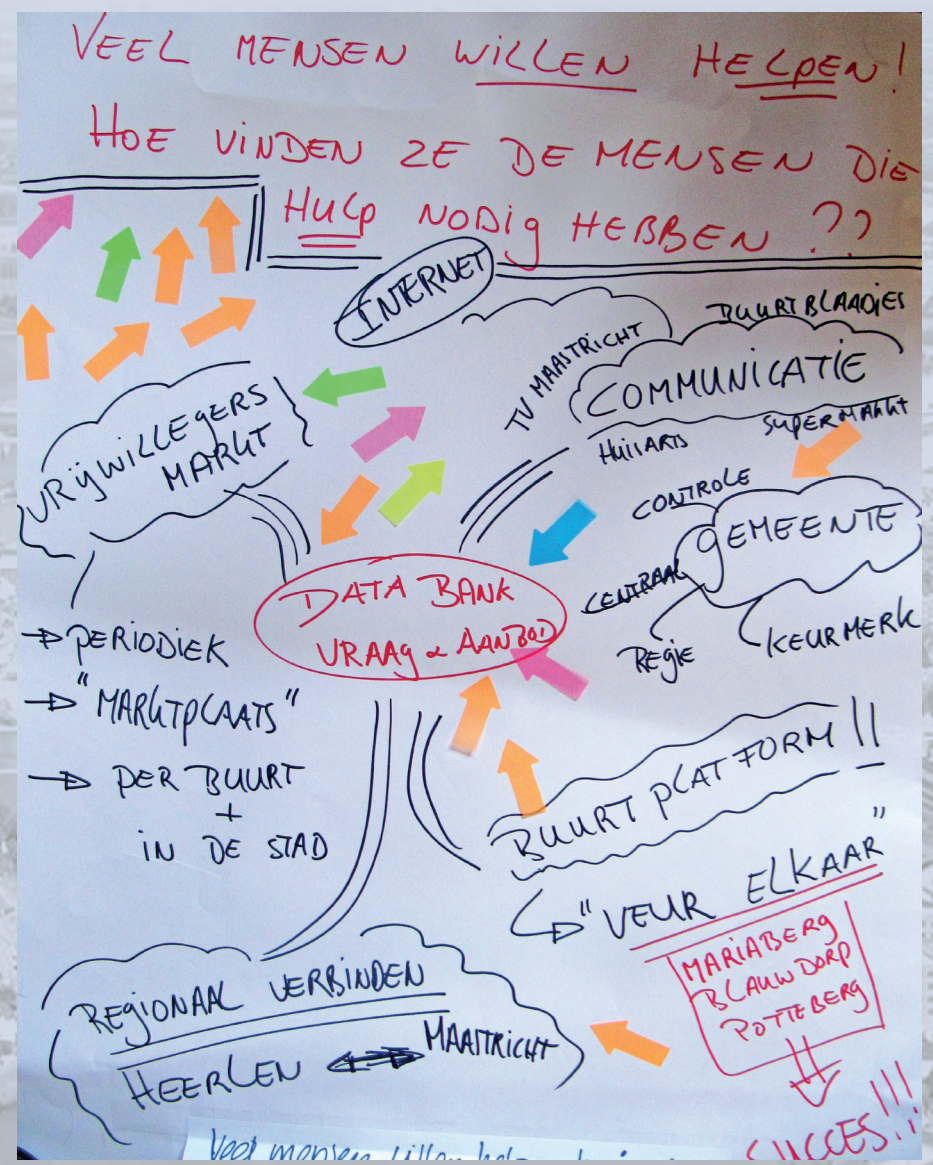 VEEL MENSEN WILLEN HELPEN!
HOE VINDEN ZE DE MENSEN DIE
HULP NODIG HEBBEN ??
INTERNET
TV MAASTRICHT
BUURTBLAADJES
COMMUNICATIE
HUISARTS
SUPERMARKT
VRIJWILLEGERS
MARKT
CONTROLE
GEMEENTE
CENTRAAL
REGIE
KEURMERK
DATA BANK
VRAAG & AANBOD
PERIODIEK
"MARKTPLAATS"
PER BUURT
+
IN DE STAD
BUURTPLATFORM !!
"VEUR ELKAAR"
MARIABERG
BLAUWDORP
POTTEBERG
SUCCES!!!
REGIONAAL VERBINDEN
HEERLEN MAASTRICHT
Veel mensen willen